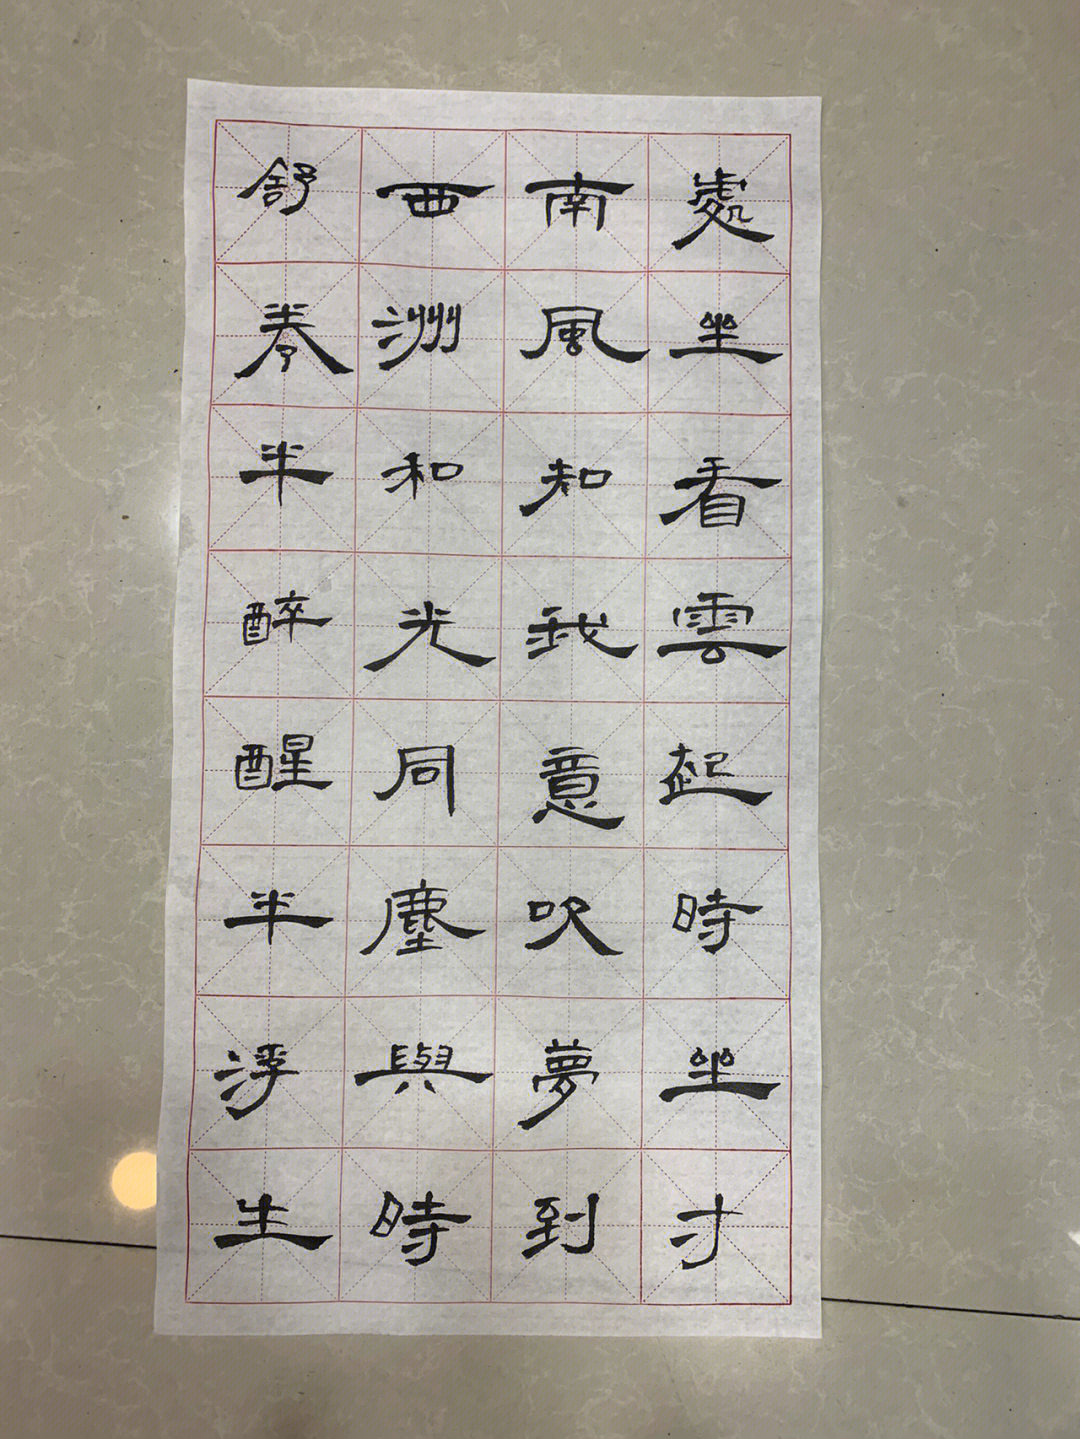 處坐看雲起時坐才
南風知我意吹夢到
西洲和光同塵與時
舒卷半醉醒半浮生